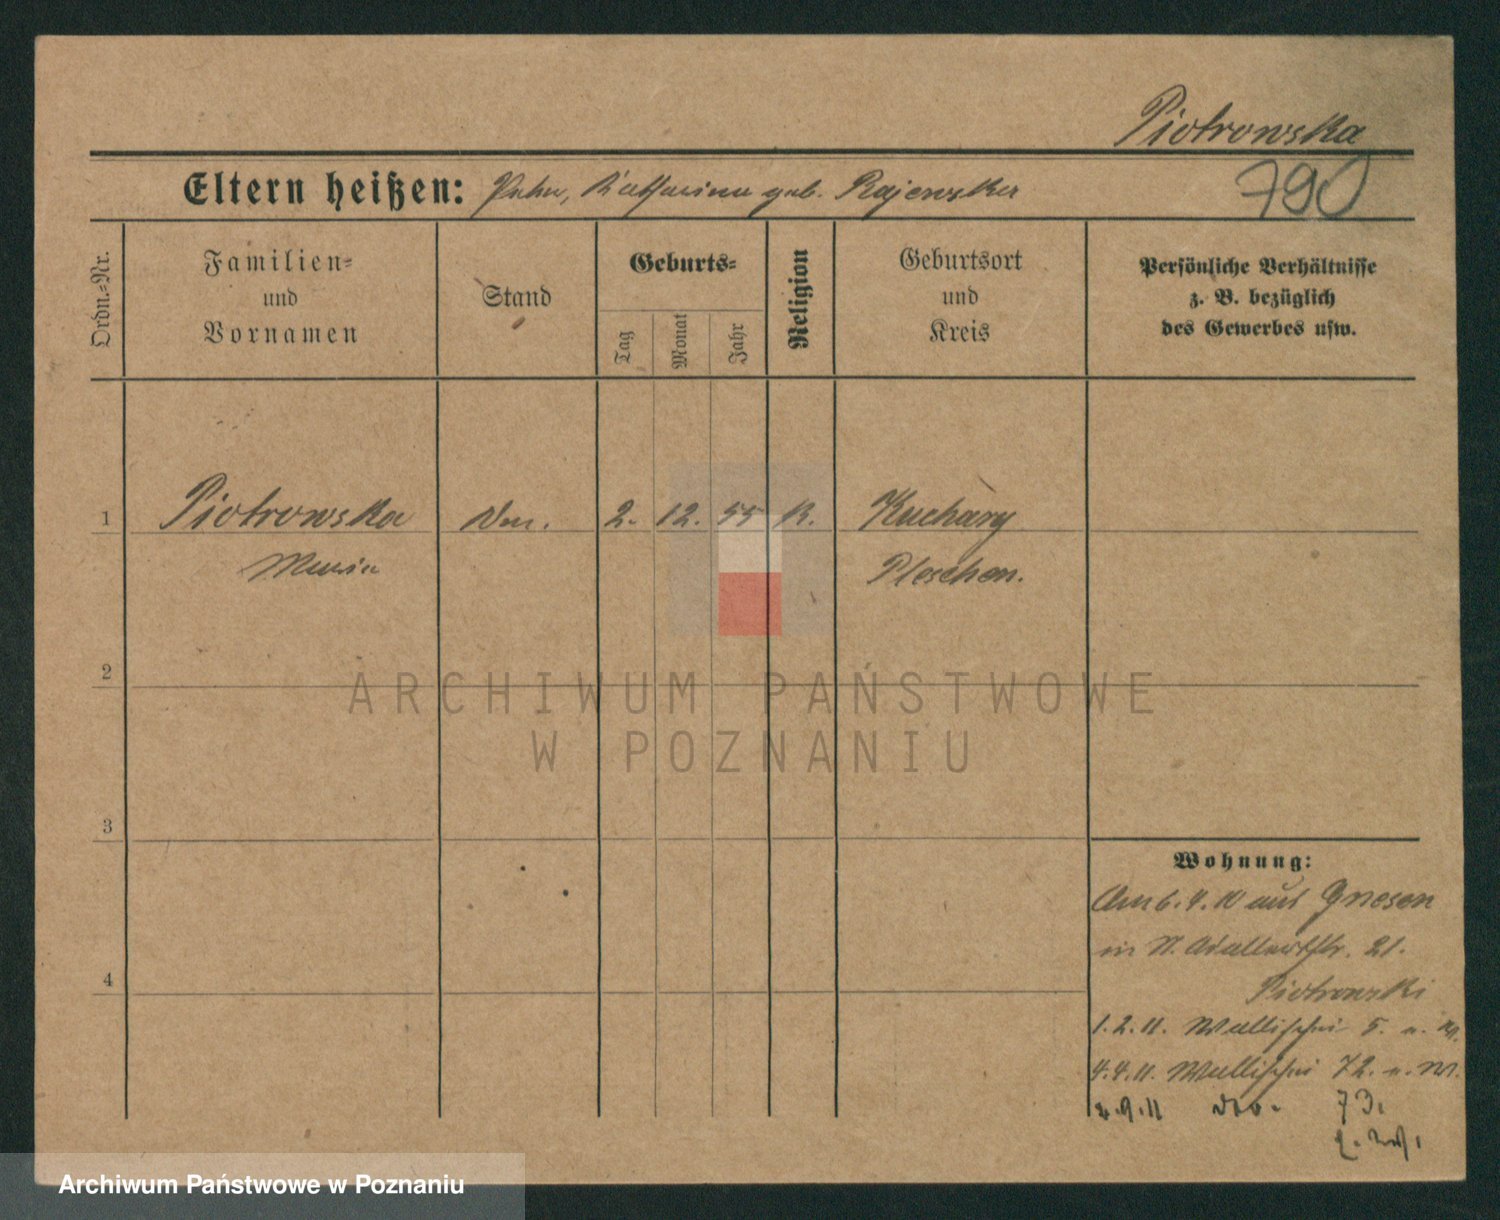 Piotrowska
790
Eltern heißen: Katharina geb. Rajewska
Ordn.=Nr.
Familien=
und
Vornamen
Stand
Geburts=
Tag
Monat
Jahr
Religion
Geburtsort
und
Kreis
Persönliche Verhältnisse
z. B. bezüglich
des Gewerbes usw.
1 Piotrowska 2. 12. 55 K. Kuchary
Maria Pleschen.
2
ARCHIWUM PAŃSTWOWE
W POZNANIU
3
Wohnung:
Am 6.4.10 aus Gnesen
in N. Adalbertstr. 21.
4
Piotrowski
1.2.11. Wallischei 5.
4.4.11. Wallischei 72.
dto. 73.
Archiwum Państwowe w Poznaniu